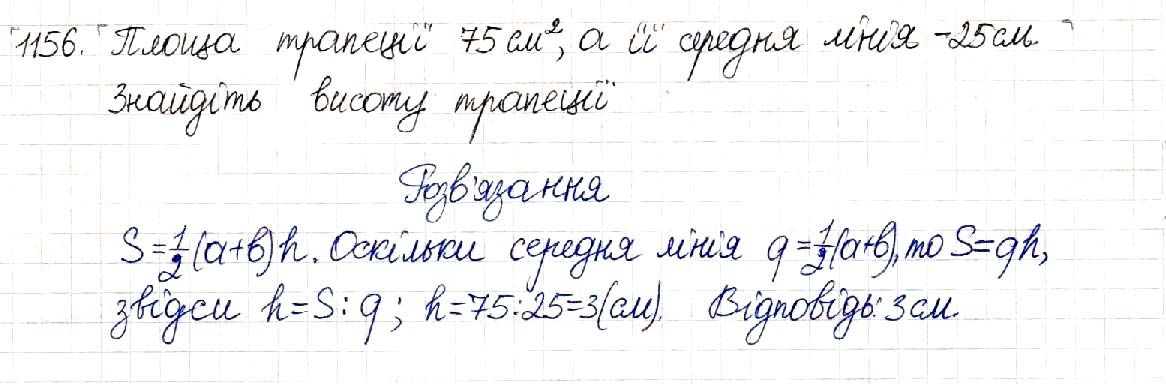 1156. Площа трапеції 75 см², а її середня лінія - 25 см.
Знайдіть висоту трапеції
Розв'язання
S=1/2(a+b)h. Оскільки середня лінія q=1/2(a+b), то S=qh,
звідси h=S:q; h=75:25=3(см). Відповідь: 3 см.